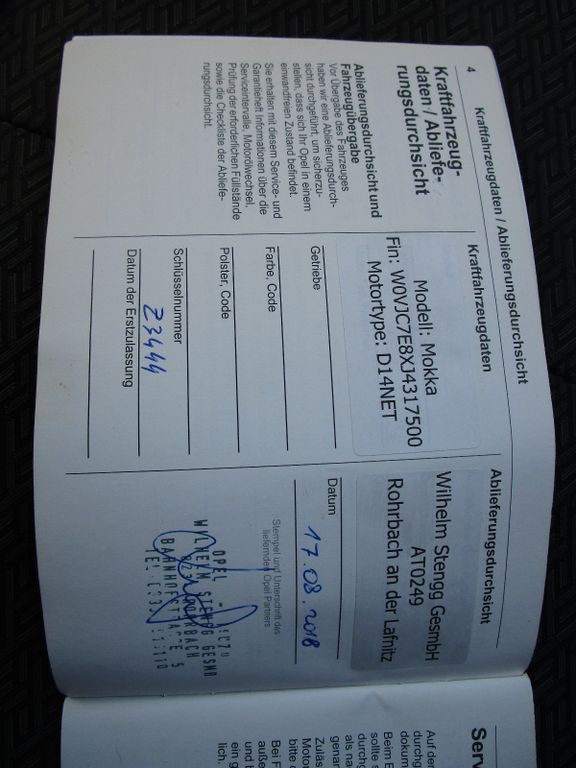 4
Kraftfahrzeugdaten / Ablieferungsdurchsicht
Kraftfahrzeug-
daten / Abliefe-
rungsdurchsicht
Ablieferungsdurchsicht und
Fahrzeugübergabe
Vor Übergabe des Fahrzeuges
haben wir eine Ablieferungsdurch-
sicht durchgeführt, um sicherzu-
stellen, dass sich Ihr Opel in einem
einwandfreien Zustand befindet.
Sie erhalten mit diesem Service- und
Garantieheft Informationen über die
Serviceintervalle, Motorölwechsel,
Prüfung der erforderlichen Füllstände
sowie die Checkliste der Abliefe-
rungsdurchsicht.
Kraftfahrzeugdaten
Modell: Mokka
Fin: W0VJC7E8XJ4317500
Motortype: D14NET
Getriebe
Farbe, Code
Polster, Code
Schlüsselnummer
Z3444
Datum der Erstzulassung
Ablieferungsdurchsicht
Wilhelm Stengg GesmbH
AT0249
Rohrbach an der Lafnitz
Datum
17.08.2018
Stempel und Unterschrift des
liefernden Opel Partners
OPEL
WILHELM STENGG GESMB
BAHNHOFSTRASSE 5
Serv
Auf der
durchg
dokum
Beim E
sollte s
durchg
als na
genan
Zuläs
Motor
bitte d
Bei F
außer
und b
ein g
lich.